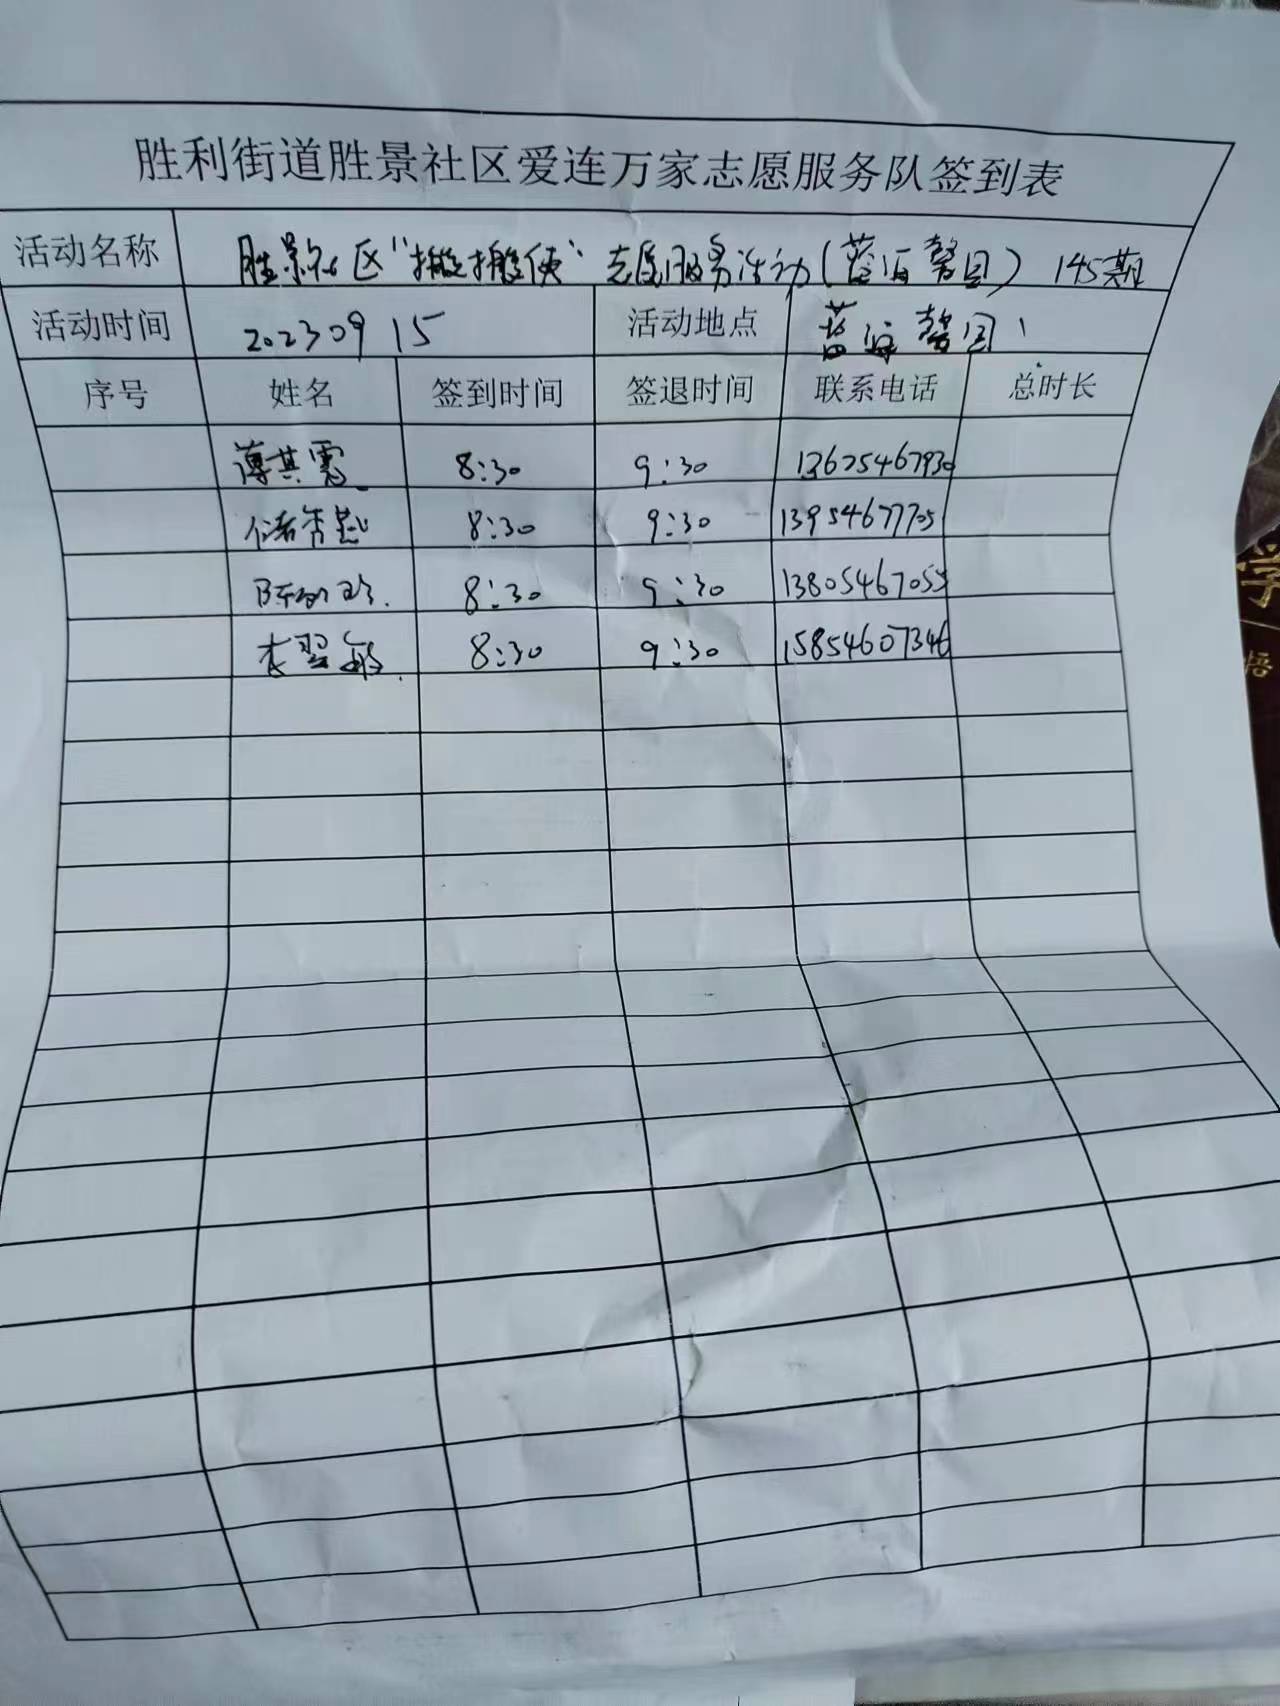 胜利街道胜景社区爱连万家志愿服务队签到表
活动名称 胜景社区"捡捡便"志愿服务活动(蓝海馨园) 145期
活动时间 20230915 活动地点 蓝海馨园
序号 姓名 签到时间 签退时间 联系电话 总时长
薄其霞 8:30 9:30 13675467930
8:30 9:30 13954677705
8:30 9:30 1380546705
8:30 9:30 15854607346
学
悟